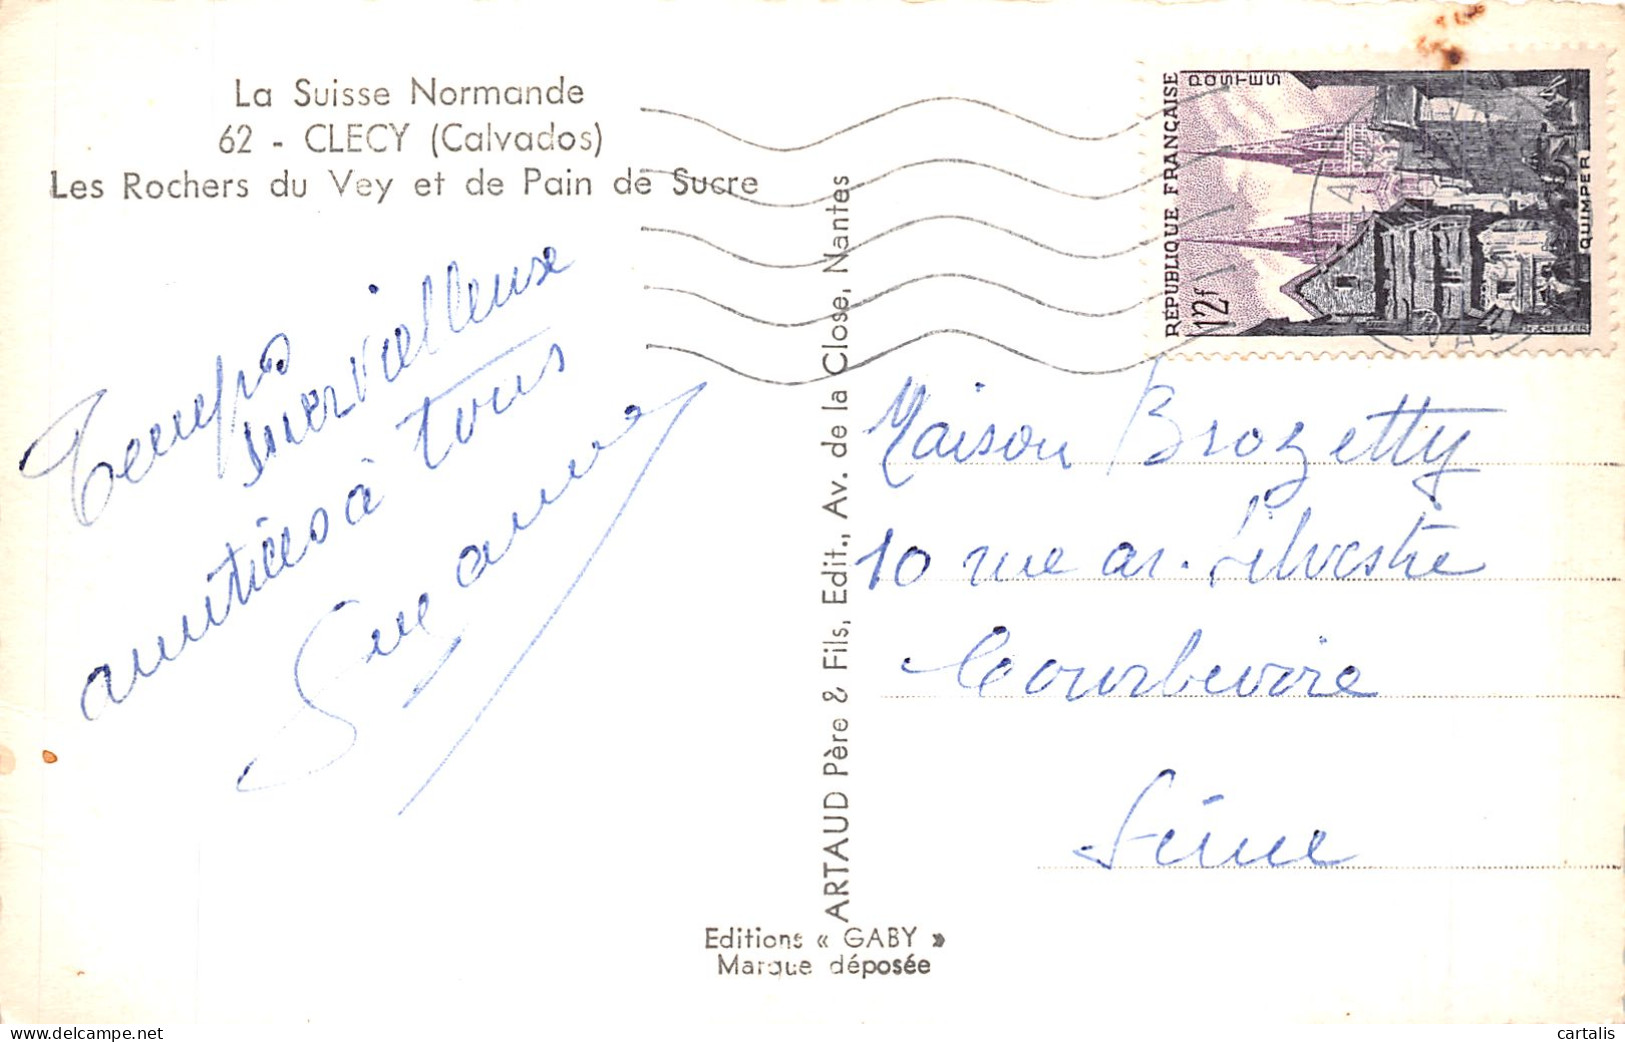 La Suisse Normande
62 - CLECY (Calvados)
Les Rochers du Vey et de Pain de Sucre
Temps
merveilleuse
amitiées à tous
Suzanne
ARTAUD Père & Fils, Edit., Av. de la Close, Nantes
Editions « GABY »
Marque déposée
RÉPUBLIQUE FRANÇAISE
POSTES
12f
QUIMPER
Maison Brozetty
10 rue ar. Silvestre
Courbevoire
Seine
cartalis